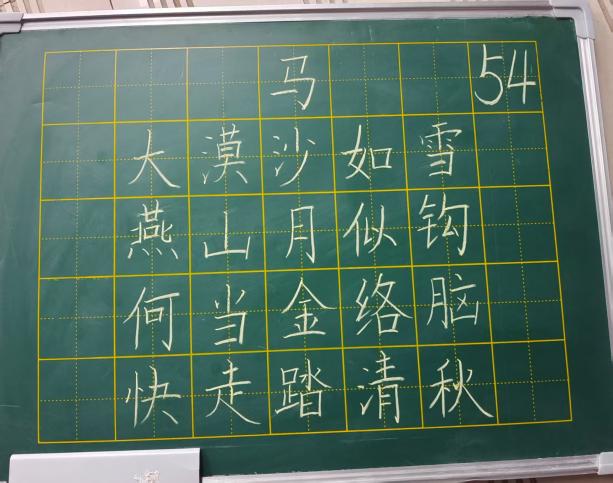 马 54
大漠沙如雪
燕山月似钩
何当金络脑
快走踏清秋